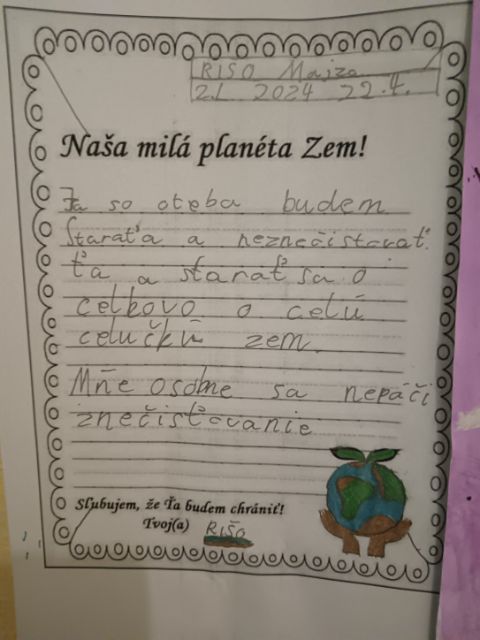 RIŠO Majza
2.L 2024 22.4.
Naša milá planéta Zem!
Ja so oteba budem
Starať a a neznečistovať.
ťa a starať sa o
celkovo o celú
celučkú zem.
Mňe osobne sa nepáči
znečisťovanie
Sľubujem, že Ťa budem chrániť!
Tvoj(a) RIŠO